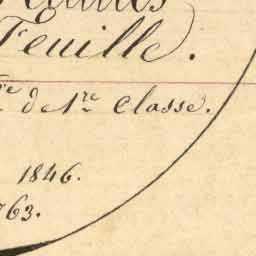 Feuille.
re de 1re Classe.
1846.
763.